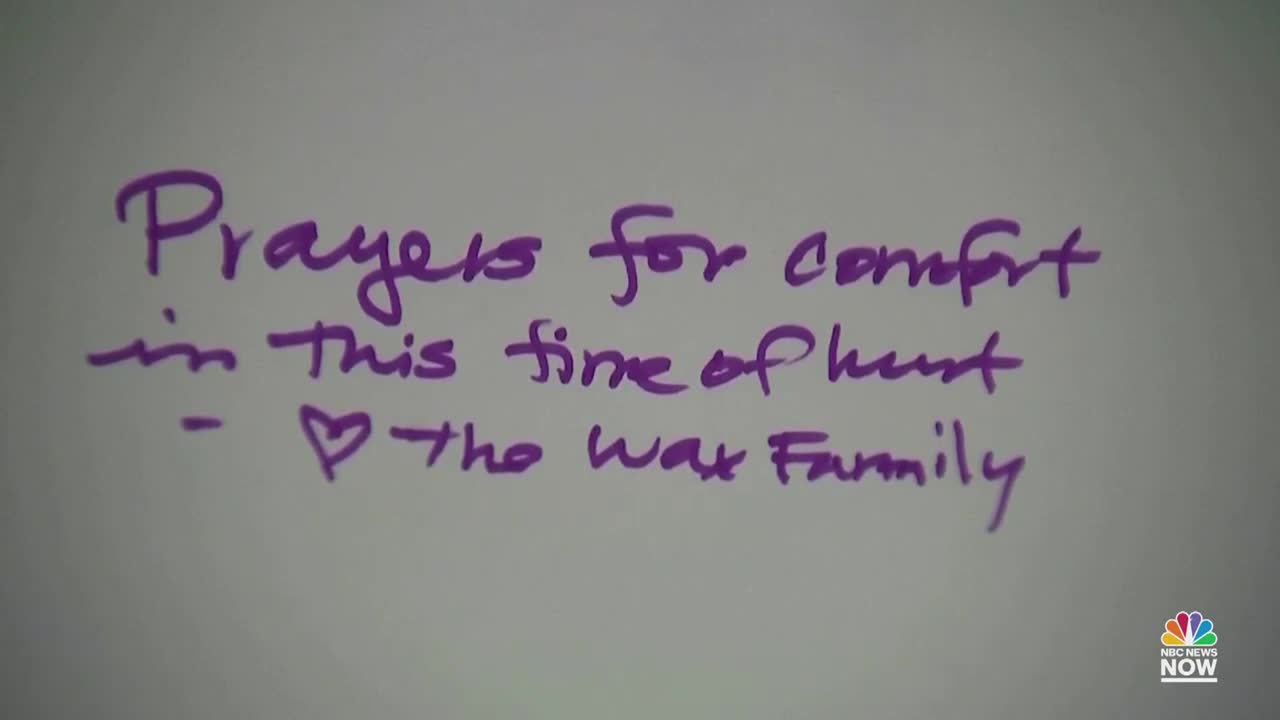 Prayers for comfort
in this time of hurt
- ♡ The Wax Family
NBC NEWS
NOW